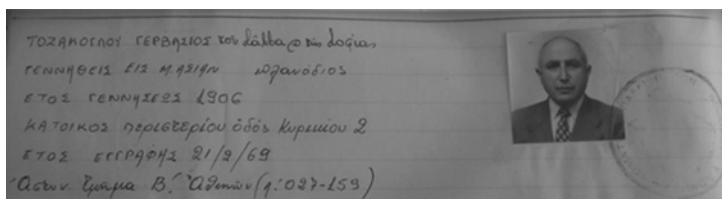 ΤΟΖΑΚΟΓΛΟΥ ΓΕΡΒΑΣΙΟΣ του Σάββα & της Σοφίας
ΓΕΝΝΗΘΕΙΣ ΕΙΣ Μ. ΑΣΙΑΝ πλανόδιος
ΕΤΟΣ ΓΕΝΝΗΣΕΩΣ 1906
ΚΑΤΟΙΚΟΣ περιστερίου ὁδός Κυρικίου 2
ΕΤΟΣ ΕΓΓΡΑΦΗΣ 21/2/69
Ἀστυν. Τμῆμα Β! Ἀθηνῶν (
027-159)